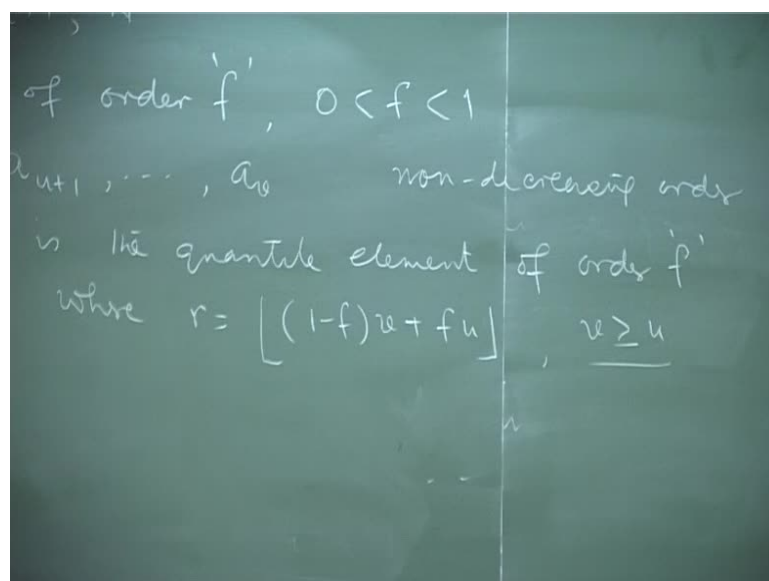 of order 'f', 0 < f < 1
a_{u+1}, ...., a_v non-decreasing order
is the quantile element of order 'f'
where r = ⌊(1-f)v + fu⌋, v ≥ u